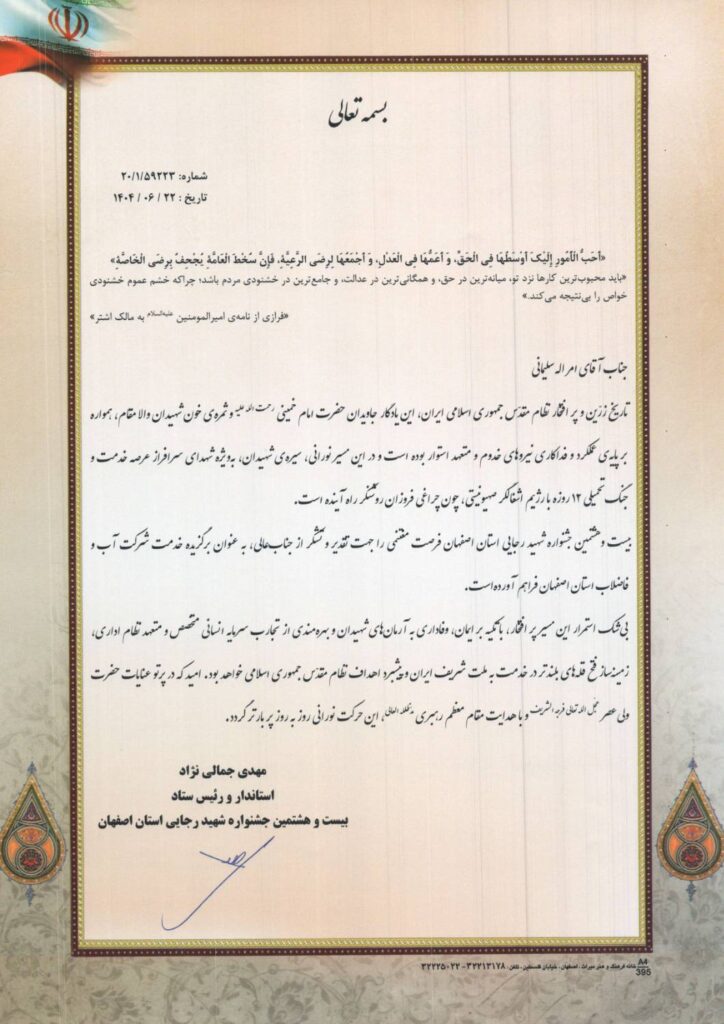 بسمه تعالی
شماره: ۲۰/۱/۵۹۲۲۳
تاریخ : ۲۲ / ۰۶ / ۱۴۰۴
«أحَبُّ الْأمُورِ إلَیْکَ أوْسَطُهَا فِی الْحَقِّ، وَ أعَمُّهَا فِی الْعَدْلِ، وَ أجْمَعُهَا لِرِضَی الرَّعِیَّةِ، فَإنَّ سُخْطَ الْعَامَّةِ یُجْحِفُ بِرِضَی الْخَاصَّةِ»
«باید محبوب‌ترین کارها نزد تو، میانه‌ترین در حق، و همگانی‌ترین در عدالت، و جامع‌ترین در خشنودی مردم باشد؛ چراکه خشم عموم خشنودی
خواص را بی‌نتیجه می‌کند.»
«فرازی از نامه‌ی امیرالمومنین علیه‌السلام به مالک اشتر»
جناب آقای امراله سلیمانی
تاریخ زرّین و پر افتخار نظام مقدّس جمهوری اسلامی ایران، این یادگار جاویدان حضرت امام خمینی رحمت الله علیه و ثمره‌ی خون شهیدان والا مقام، همواره
بر پایه‌ی عملکرد و فداکاری نیروهای خدوم و متعهد استوار بوده است و در این مسیر نورانی، سیره‌ی شهیدان، به‌ویژه شهدای سرافراز عرصه خدمت و
جنگ تحمیلی ۱۲ روزه با رژیم اشغالگر صهیونیستی، چون چراغی فروزان روشنگر راه آینده است.
بیست و هشتمین جشنواره شهید رجایی استان اصفهان فرصت مغتنمی را جهت تقدیر و تشکر از جناب‌عالی، به عنوان برگزیده خدمت شرکت آب و
فاضلاب استان اصفهان فراهم آورده است.
بی‌شک استمرار این مسیر پر افتخار، با تکیه بر ایمان، وفاداری به آرمان‌های شهیدان و بهره‌مندی از تجارب سرمایه انسانی متخصص و متعهد نظام اداری،
زمینه‌ساز فتح قله‌های بلندتر در خدمت به ملت شریف ایران و پیشبرد اهداف نظام مقدّس جمهوری اسلامی خواهد بود. امید که در پرتو عنایات حضرت
ولی عصر عجل الله تعالی فرجه الشریف و با هدایت مقام معظم رهبری مدظله العالی، این حرکت نورانی روز به روز پر بارتر گردد.
مهدی جمالی نژاد
استاندار و رئیس ستاد
بیست و هشتمین جشنواره شهید رجایی استان اصفهان
A4
395
خانه فرهنگ و هنر میراث ، اصفهان ، خیابان فلسطین، تلفن : ۳۲۲۱۳۱۷۸ - ۳۲۲۲۵۰۲۲